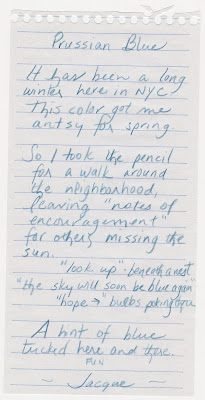 Prussian Blue
It has been a long
winter here in NYC
This color got me
antsy for spring.
So I took the pencil
for a walk around
the neighborhood,
leaving "notes of
encouragement"
for others missing the
sun.
"look up" - beneath a nest
"the sky will soon be blue again"
"hope →" bulbs poking
A hint of blue
tucked here and there.
FUN
~ Jacque ~